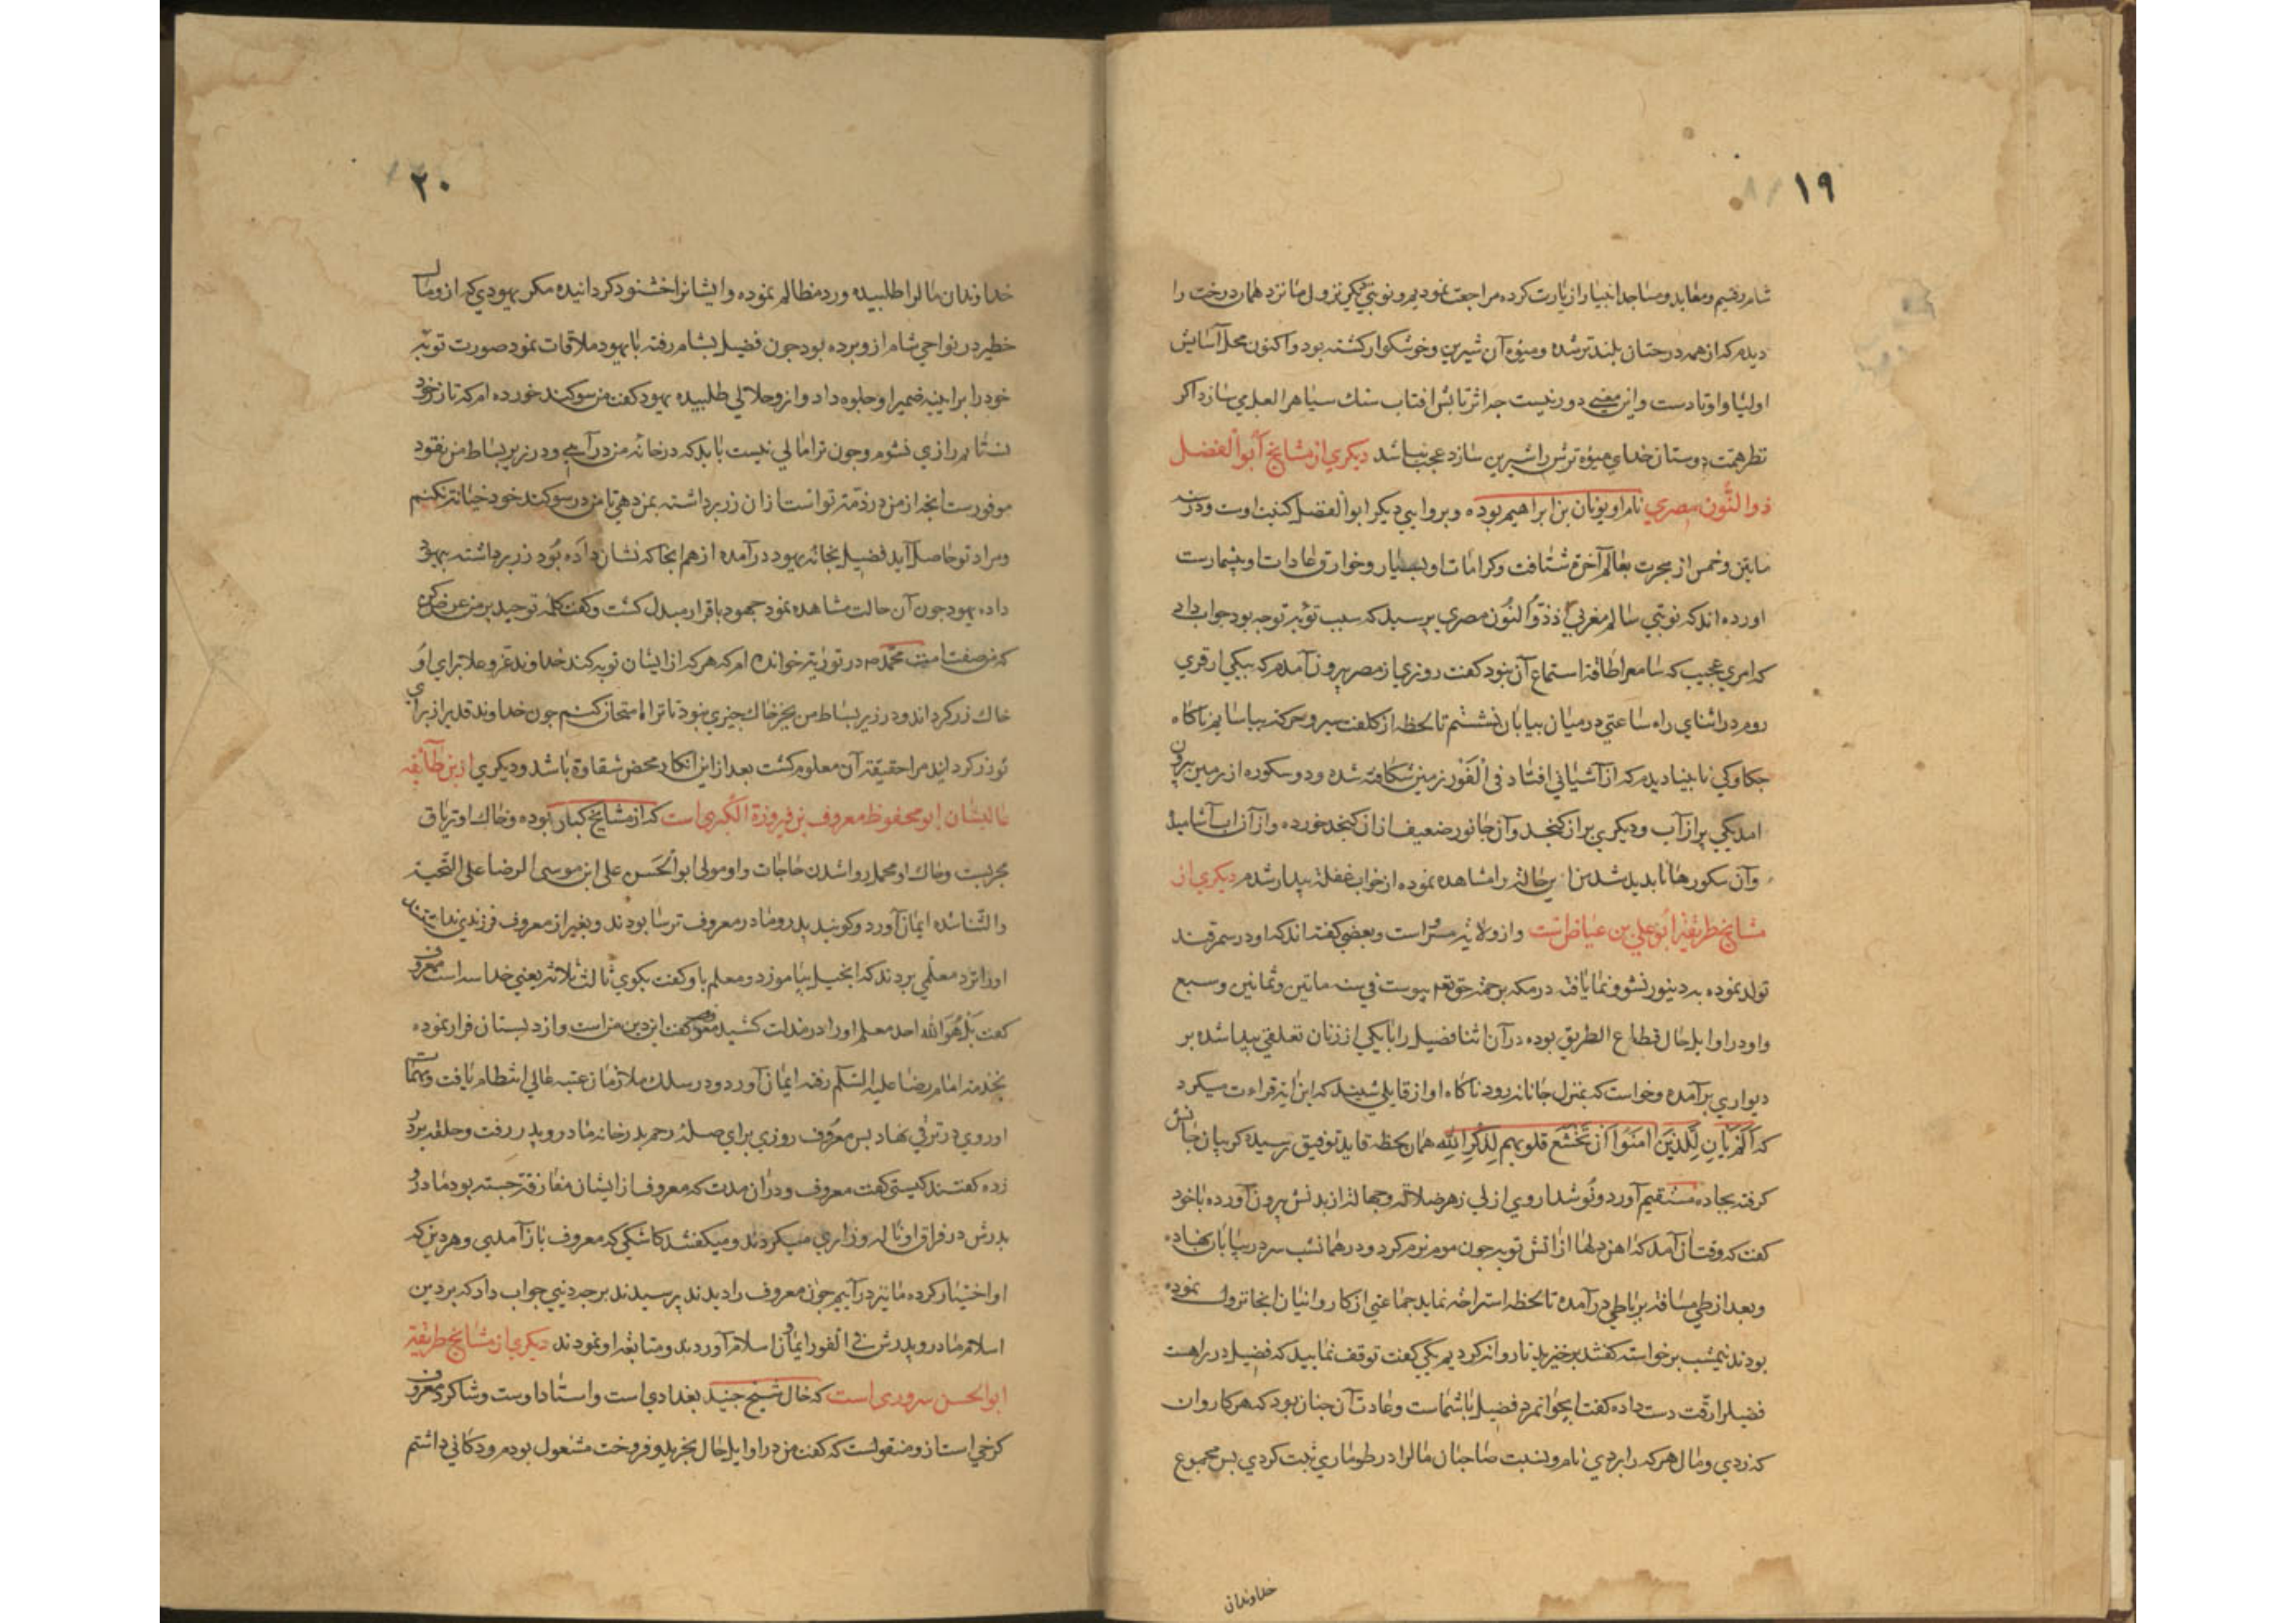 ١٩
شام رفتیم و معابد و مساجد انبیا را زیارت کرده مراجعت نمودیم و نوبتی دیکر نزول ما نزد همان درخت را
دیدم که از همه درختان بلندتر شده و میوه آن شیرین و خوشکوار کشته بود و اکنون محل آسایش
اولیا و اوتادست و این معنی دور نیست جه اثر تابش افتاب سنک سیاه را لعل می سازد اکر
نظر همت دوستان خدای میوه ترش را شیرین سازد عجب نباشد دیکری از مشایخ ابوالفضل
ذوالنون مصری نام او یونان بن ابراهیم بوده و بروایتی دیکر ابوالفضل کنیت اوست و در سنه
مایتین و خمس از هجرت بعالم آخرة شتافت و کرامات او بسیار و خوارق عادات او بیشمارست
اورده اند که نوبتی سالم مغربی از ذوالنون مصری پرسید که سبب توبه تو جه بود جواب داد
که امری عجیب که سامع را طاقة استماع آن نبود کفت روزی از مصر بیرون آمدم که بیکی از قری
روم در اثنای راه ساعتی در میان بیابان نشستم تا لحظه از کلفت سیر و حرکة بیاسایم ناکاه
جکاوکی نابینا دیدم که از آشیانی افتاد فی الفور زمین شکافته شده و دو سکوره از زمین بیرون
امد یکی پر از آب و دیکری پر از کنجد و آن جانور ضعیف از آن کنجد خورده و از آن اب آشامید
و آن سکورها ناپدید شد من این حالة را مشاهده نموده از خواب غفلة بیدار شدم دیکری از
مشایخ طریقة ابوعلی بن عیاض است و از ولایة مرو است و بعضی کفته اند که او در سمرقند
تولد نموده به دینور نشو و نما یافته در مکه برحمة حق تعم پیوست فی سنه ماتین و ثمانین و سبع
و او در اوایل حال قطاع الطریق بوده در آن اثنا فضیل را با یکی از زنان تعلقی پیدا شده بر
دیواری برآمده و خواست که بمنزل جانانه رود ناکاه اواز قایلی شنید که این ایة قراءت میکرد
که اَلَمْ یَأنِ لِلَّذینَ امَنُوا اَنْ تَخْشَعَ قلوبهم لِذِکْرِ اللهِ همان لحظه قاید توفیق رسیده کریبان جانش
کرفته بجاده مستقیم آورد و نوشداروی از لب زهر ضلالة و جهالة از بدنش بیرون آورده با خود
کفت که وقت آن آمد که اهن دلها از اتش توبه جون موم نرم کردد و در همان شب سر در بیابان نهاده
و بعد از طی مسافة برباطی در آمده تا لحظه استراحة نماید جماعتی از کاروانیان انجا نزول نموده
بودند نیمشب برخواسته کفتند برخیزید تا روانه کردیم یکی کفت توقف نمایید که فضیل در راهست
فضیل را رقت دست داده کفت ایجوانمرد فضیل با شماست و عادت آن جنان بود که هر کاروان
که زدی و مال هر که را بردی نام و نسبت صاحبان مال را در طوماری ثبت کردی پس مجموع
خداوندان
٢٠
خداوندان مال را طلبیده و رد مظالم نموده و ایشانرا خشنود کردانیده مکر یهودی که ازو مال
خطیر در نواحی شام ازو برده بود جون فضیل بشام رفته با یهود ملاقات نمود صورت توبه
خود را بر اینه ضمیر او جلوه داد و ازو حلالی طلبیده یهود کفت من سوکند خورده ام که تا زر خود
نستانم راضی نشوم و جون ترا مالی نیست باید که در خانه من درآیی و در زیر بساط من نقود
موفورست انجه از من در ذمّة تو است از ان زر برداشته بمن دهی تا من در سوکند خود خیانة نکنم
و مراد تو حاصل آید فضیل بخانه یهود درآمده از هم انجا که نشان داده بود زر برداشته بیهود
داده یهود جون آن حالت مشاهده نمود جحود باقرار مبدل کشت و کفت کلمه توحید بر من عرض کن
که من صفت امت محمد ص در توریة خوانده ام که هر که از ایشان توبه کند خداوند عز و علا برای او
خاک زر کرداند و در زیر بساط من بجز خاک جیزی نبود تا ترا امتحان کنم جون خداوند قدیر از برای
تو زر کردانید مرا حقیقة آن معلوم کشت بعد از این انکار محض شقاوة باشد و دیکری از این طائفه
عالیشان ابو محفوظ معروف بن فیروزة الکرخی است که از مشایخ کبار بوده و خاک او تریاق
مجربست و خاک او محمل روا شدن حاجات و او مولی ابوالحسن علی ابن موسی الرضا علی التحیة
و الثنا شده ایمان آورد و کویند پدر و مادر معروف ترسا بودند و بغیر از معروف فرزندی نداشتند
او را نزد معلمی بردند که انجیل بیاموزد و معلم باو کفت بکوی ثالث ثلاثه یعنی خدا سه است معروف
کفت بل هُوَ الله احد معلم او را در مذلت کشید معروف کفت این دین من است و از دبستان فرار نموده
بخدمة امام رضا علیه السّلم رفته ایمان آورد و در سلک ملازمان عتبه عالی انتظام یافت و مهمات
او روی در ترقی نهاد پس معروف روزی برای صلهٔ رحم بدر خانه مادر و پدر رفت و حلقه بر در
زده کفتند کیستی کفت معروف و در ان مدت که معروف از ایشان مفارقة جسته بود مادر و
پدرش در فراق او ناله و زاری میکردند و میکفتند کاشکی که معروف باز آمدی و هر دین که
او اختیار کرده ما نیز در آییم جون معروف را دیدند پرسیدند بر جه دینی جواب داد که بر دین
اسلام مادر و پدرش فی الفور ایمان اسلام آوردند و متابعة او نمودند دیکری از مشایخ طریقة
ابوالحسن سروری است که خال شیخ جنید بغدادی است و استاد اوست و شاکرد معروف
کرخی است از و منقولست که کفت من در اوایل حال بخرید و فروخت مشغول بودم و دکانی داشتم